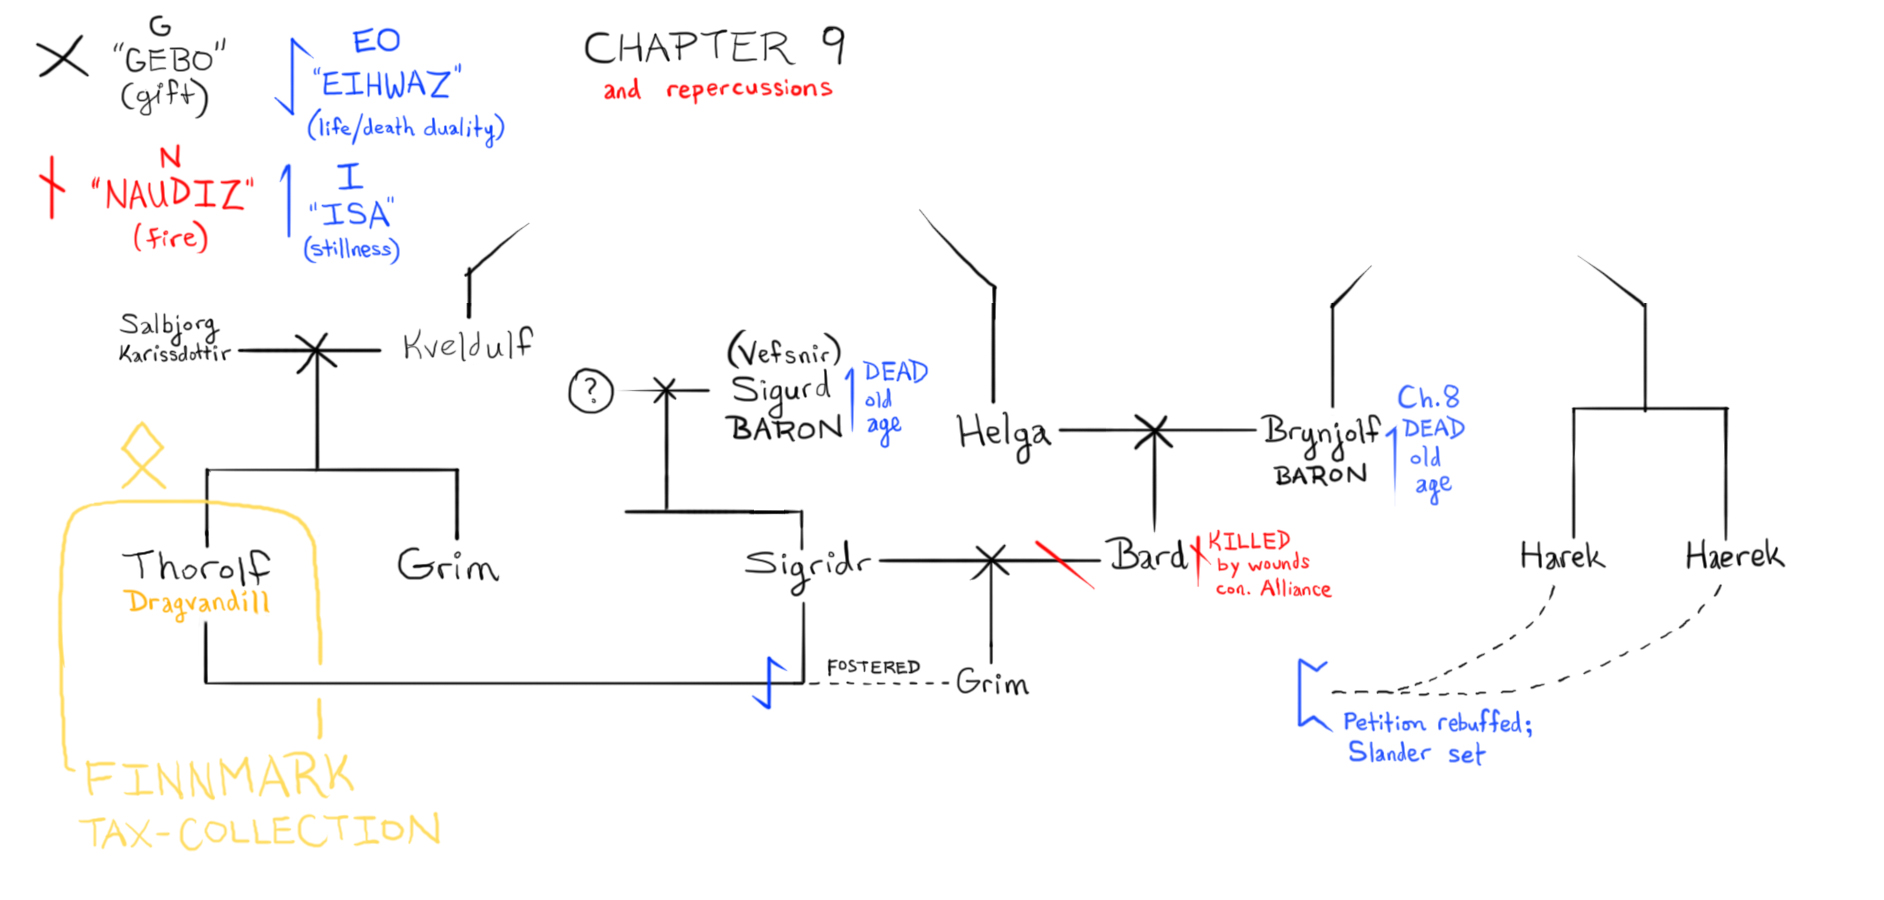 G
"GEBO"
(gift)
EO
"EIHWAZ"
(life/death duality)
N
"NAUDIZ"
(fire)
I
"ISA"
(stillness)
CHAPTER 9
and repercussions
Salbjorg
Karissdottir
Kveldulf
?
(Vefsnir)
Sigurd
BARON
DEAD
old
age
Helga
Brynjolf
BARON
Ch.8
DEAD
old
age
Thorolf
Dragvandill
Grim
Sigridr
Bard
KILLED
by wounds
con. Alliance
Harek
Haerek
FOSTERED
Grim
Petition rebuffed;
Slander set
FINNMARK
TAX-COLLECTION